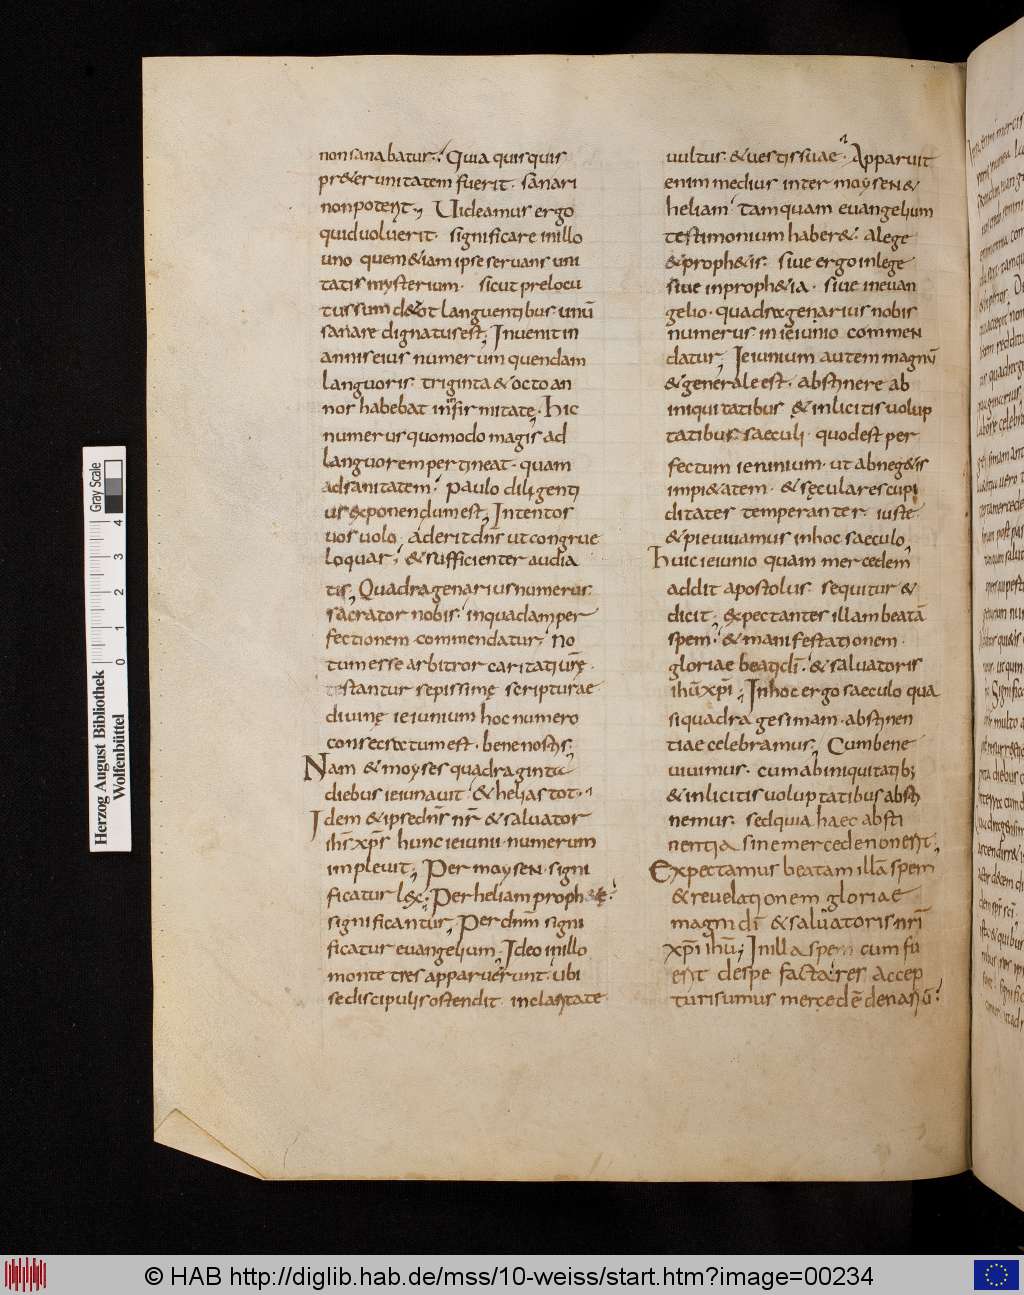 non sanabatur; Quia quisquis
pr&er unitatem fuerit· sanari
non potest; Uideamus ergo
quid uoluerit· significare in illo
uno quem &iam ipse seruans uni
tatis mysterium· sicut prelocu
tus sum de tot languentibus unū
sanare dignatus est; Inuenit in
annis eius numerum quendam
languoris· triginta & octo an
nos habebat in infirmitate; hic
numerus quomodo magis ad
languorem pertineat· quam
ad sanitatem· paulo diligenti
us exponendum est; Intentos
uos uolo· aderit dn̄s ut congrue
loquar; & sufficienter audia
tis; Quadragenarius numerus
sacrator nobis· in quadam per
fectione commendatur; No
tum esse arbitror caritati urę·
testantur sepissimę scripturae
diuinę ieiunium hoc numero
consecratum est· bene nostis;
Nam & moyses quadraginta
diebus ieiunauit & helias tot·
Idem & ipse dn̄s nr̄ & saluator
ih̄s xp̄s hunc ieiunii numerum
impleuit; Per moysen· signi
ficatur lex; Per heliam proph&ę·
significantur; Per dn̄m signi
ficatur euangelium; Ideo in illo
monte tres apparuerunt· ubi
se discipulis ostendit· in claritate
uultus & uestis suae· Apparuit
enim medius inter moysen &
heliam tamquam euangelium
testimonium haber&· a lege
& proph&is· siue ergo in lege
siue in proph&ia· siue in euan
gelio· quadragenarius nobis
numerus in ieiunio commen
datur; Ieiunium autem magnū
& generale est· abstinere ab
iniquitatibus & inlicitis uolup
tatibus saeculi· quod est per
fectum ieiunium· ut abneg&is
impi&atem· & sęculares cupi
ditates temperanter iuste
& pie uiuamus in hoc saeculo;
Huic ieiunio quam mercedem
addit apostolus· sequitur &
dicit· expectantes illam beatā
spem· & manifestationem·
gloriae beati dī· & saluatoris
ih̄u xp̄i; In hoc ergo saeculo qua
si quadragesimam· abstinen
tiae celebramus; Cum bene
uiuimus· cum ab iniquitatib;
& inlicitis uoluptatibus absti
nemus· sed quia haec absti
nentia sine mercede non erit;
Expectamus beatam illā spem
& reuelationem gloriae
magni dī & saluatoris nr̄i
xp̄i ih̄u; In illa spe cum fu
erit de spe facta res accep
turi sumus mercedē denariū·
Herzog August Bibliothek
Wolfenbüttel
Gray Scale
0 1 2 3 4
© HAB http://diglib.hab.de/mss/10-weiss/start.htm?image=00234